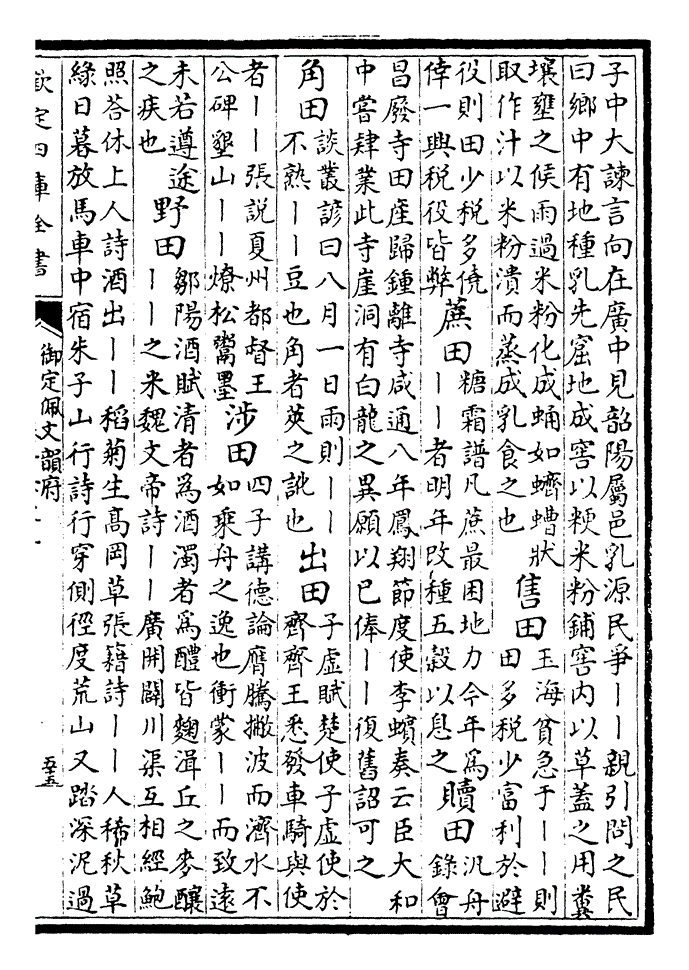 子中大諫言向在廣中見韶陽屬邑乳源民爭丨丨親引問之民
曰鄉中有地種乳先窟地成窖以粳米粉鋪窖内以草蓋之用糞
壤壅之候雨過米粉化成蛹如蠐螬狀
取作汁以米粉漬而蒸成乳食之也
售田
玉海貧急于丨丨則
田多税少富利於避
役則田少税多僥
倖一興税役皆弊
蔗田
糖霜譜凡蔗最困地力今年為
丨丨者明年改種五穀以息之
贖田
汎舟
錄會
昌廢寺田産歸鍾離寺咸通八年鳳翔節度使李蠙奏云臣大和
中嘗肄業此寺崖洞有白龍之異願以已俸丨丨復舊詔可之
角田
談叢諺曰八月一日雨則丨丨
不熟丨丨豆也角者莢之訛也
出田
子虛賦楚使子虛使於
齊齊王悉發車騎與使
者丨丨張説夏州都督王
公碑墾山丨丨燎松鬻墨
涉田
四子講德論膺騰撇波而濟水不
如乘舟之逸也衝蒙丨丨而致遠
未若遵途
之疾也
野田
鄒陽酒賦清者為酒濁者為醴皆麴湒丘之麥釀
丨丨之米魏文帝詩丨丨廣開闢川渠互相經鮑
照荅休上人詩酒出丨丨稻菊生高岡草張籍詩丨丨人稀秋草
綠日暮放馬車中宿朱子山行詩行穿側徑度荒山又踏深泥過
欽定四庫全書
御定佩文韻府
五十五